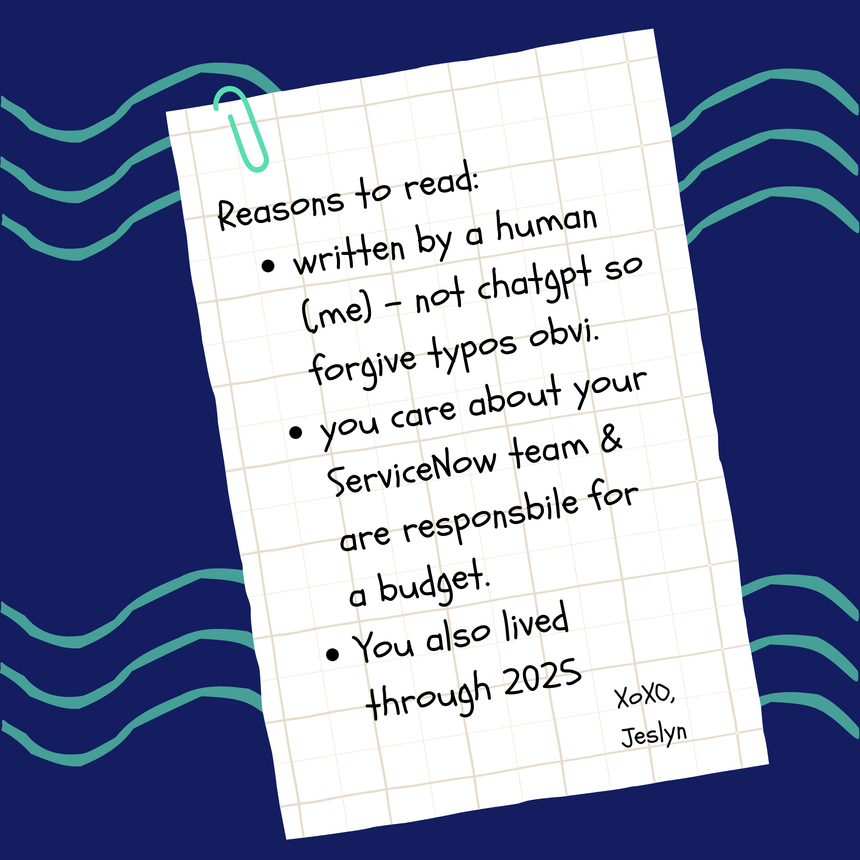 Reasons to read:
• written by a human
(me) - not chatgpt so
forgive typos obvi.
• you care about your
ServiceNow team &
are responsbile for
a budget.
• You also lived
through 2025
XOXO,
Jeslyn